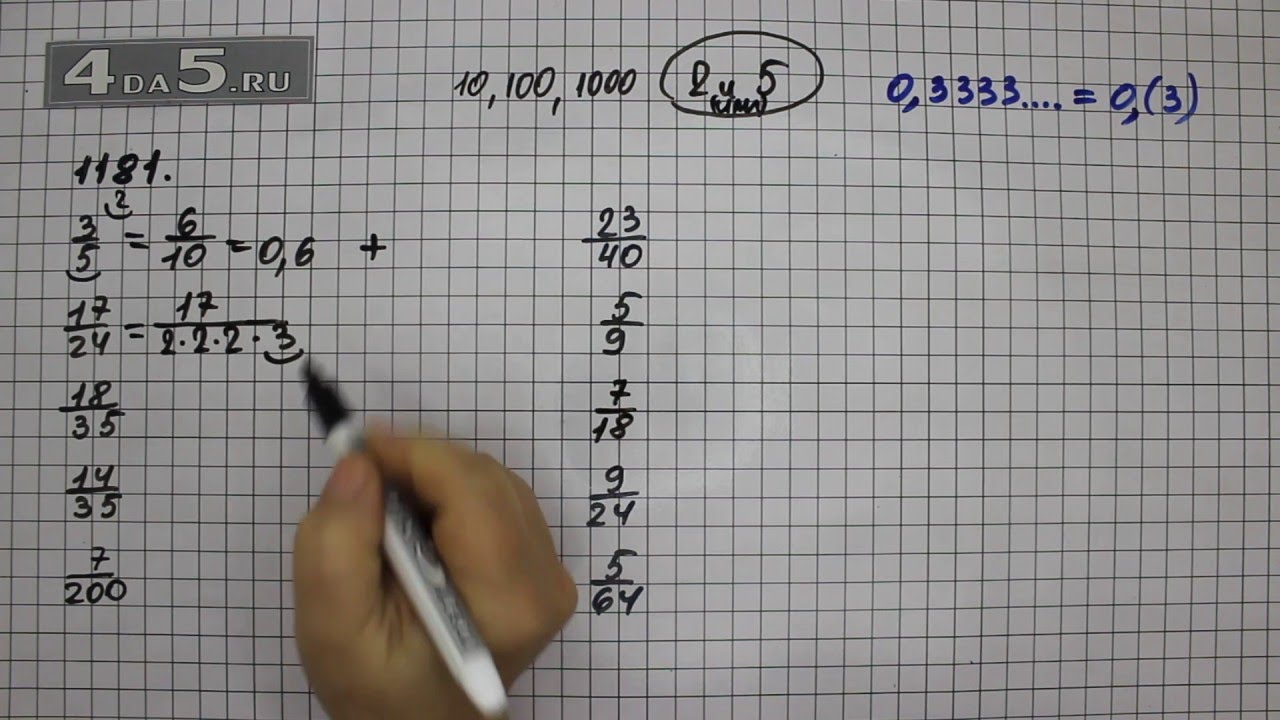 4DA5.RU
10, 100, 1000 2 и 5
или
0,3333.... = 0,(3)
1181.
2
3/5 = 6/10 = 0,6 +
17/24 = 17/(2·2·2·3)
18/35
14/35
7/200
23/40
5/9
7/18
9/24
5/64